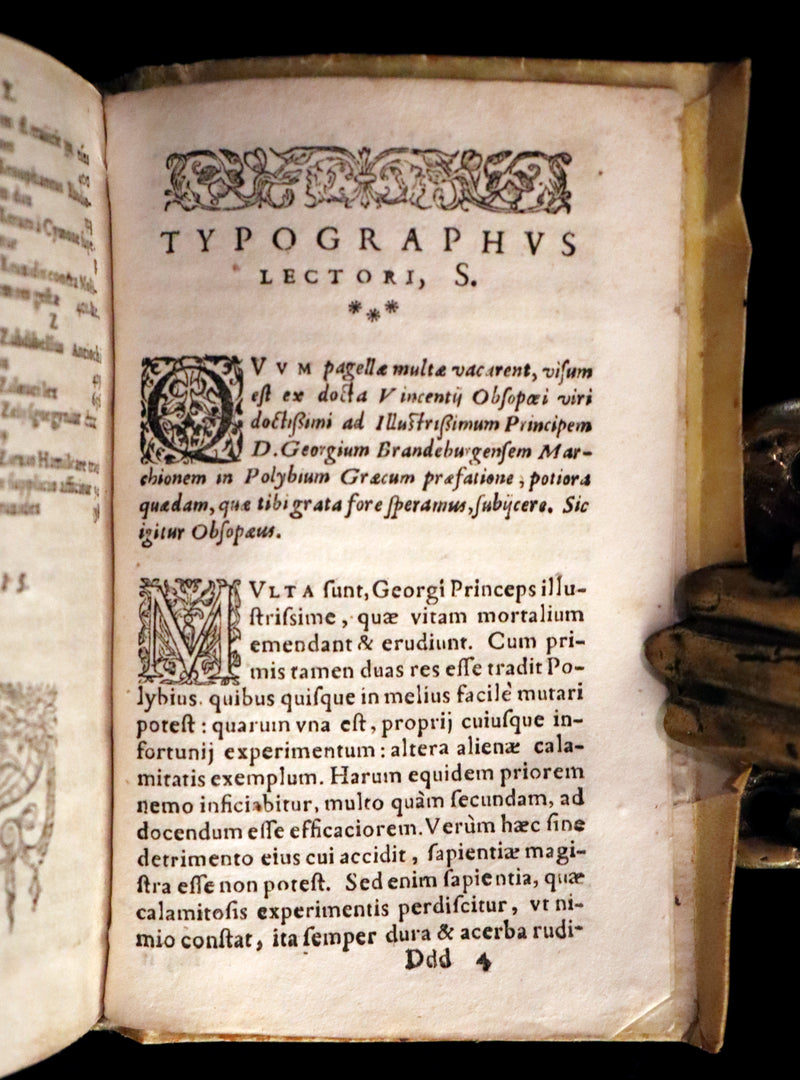 TYPOGRAPHVS
LECTORI, S.
***
QVVM pagellæ multæ vacarent, viſum
eſt ex docta Vincentij Obſopœi viri
doctiſſimi ad Illuſtriſſimum Principem
D. Georgium Brandeburgenſem Mar-
chionem in Polybium Græcum præfatione, potiora
quædam, quæ tibi grata fore ſperamus, ſubijcere. Sic
igitur Obſopæus.
MVLTA ſunt, Georgi Princeps illu-
ſtriſsime, quæ vitam mortalium
emendant & erudiunt. Cum pri-
mis tamen duas res eſſe tradit Po-
lybius, quibus quiſque in melius facilè mutari
poteſt: quarum vna eſt, proprij cuiuſque in-
fortunij experimentum: altera alienæ cala-
mitatis exemplum. Harum equidem priorem
nemo inficiabitur, multo quàm ſecundam, ad
docendum eſſe efficaciorem. Verùm hæc ſine
detrimento eius cui accidit, ſapientiæ magi-
ſtra eſſe non poteſt. Sed enim ſapientia, quæ
calamitoſis experimentis perdiſcitur, vt ni-
mio conſtat, ita ſemper dura & acerba rudi-
Ddd 4